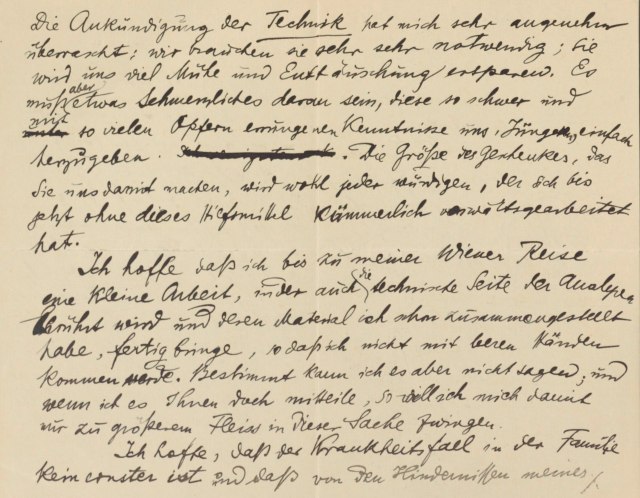 Die Ankündigung der Technik hat mich sehr angenehm
überrascht; wir brauchen sie sehr sehr notwendig; sie
wird uns viel Mühe und Enttäuschung ersparen. Es
muß aber etwas Schmerzliches daran sein, diese so schwer und
mit so vielen Opfern errungenen Kenntnisse uns, Jüngern, einfach
herzugeben. Die Größe des Geschenkes, das
Sie uns damit machen, wird wohl jeder würdigen, der sich bis
jetzt ohne dieses Hilfsmittel kümmerlich vorwärtsgearbeitet
hat.
Ich hoffe daß ich bis zu meiner Wiener Reise
eine kleine Arbeit, in der auch die technische Seite der Analyse
berührt wird und deren Material ich schon zusammengestellt
habe, fertig bringe, so daß ich nicht mit leeren Händen
kommen werde. Bestimmt kann ich es aber nicht sagen; und
wenn ich es Ihnen doch mitteile, so will ich mich damit
nur zu größerem Fleiss in dieser Sache zwingen.
Ich hoffe, daß der Krankheitsfall in der Familie
kein ernster ist und daß von den Hindernissen meines